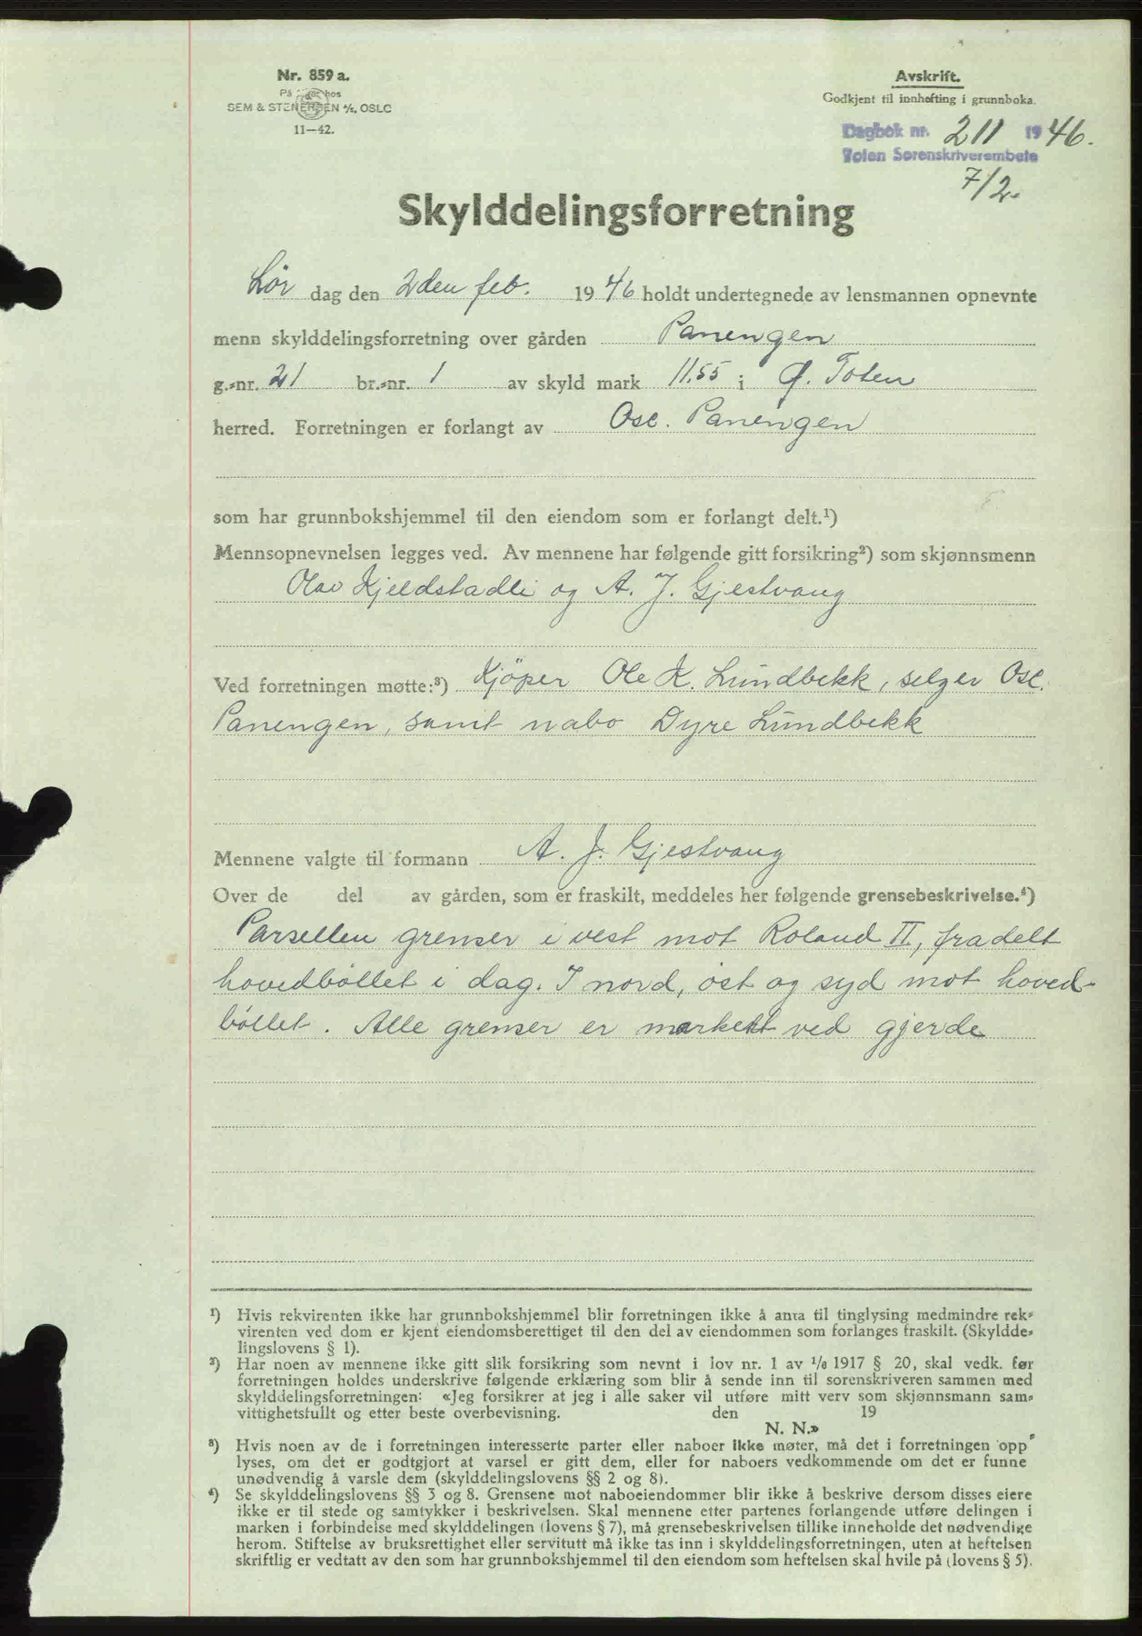 Nr. 859 a.
På lager hos
SEM & STENERSEN A/S, OSLO
11—42.
Avskrift.
Godkjent til innhefting i grunnboka.
Dagbok nr. 211 1946.
Toten Sorenskriverembete
7/2.
Skylddelingsforretning
Lør dag den 2den feb. 1946 holdt undertegnede av lensmannen opnevnte
menn skylddelingsforretning over gården Panengen
g.-nr. 21 br.-nr. 1 av skyld mark 11.55 i Ø. Toten
herred. Forretningen er forlangt av Osc. Panengen
som har grunnbokshjemmel til den eiendom som er forlangt delt.¹)
Mennsopnevnelsen legges ved. Av mennene har følgende gitt forsikring²) som skjønnsmenn
Olav Kjeldstadli og A. J. Gjestvang
Ved forretningen møtte:³) Kjøper Ole K. Lundbekk, selger Osc.
Panengen, samt nabo Dyre Lundbekk
Mennene valgte til formann A. J. Gjestvang
Over de del av gården, som er fraskilt, meddeles her følgende grensebeskrivelse.⁴)
Parsellen grenser i vest mot Roland II, fradelt
hovedbøllet i dag. I nord, øst og syd mot hoved-
bøllet. Alle grenser er merkett ved gjerde
¹) Hvis rekvirenten ikke har grunnbokshjemmel blir forretningen ikke å anta til tinglysing medmindre rek-
virenten ved dom er kjent eiendomsberettiget til den del av eiendommen som forlanges fraskilt. (Skyldde-
lingslovens § 1).
²) Har noen av mennene ikke gitt slik forsikring som nevnt i lov nr. 1 av ¹/₆ 1917 § 20, skal vedk. før
forretningen holdes underskrive følgende erklæring som blir å sende inn til sorenskriveren sammen med
skylddelingsforretningen: «Jeg forsikrer at jeg i alle saker vil utføre mitt verv som skjønnsmann sam-
vittighetsfullt og etter beste overbevisning. den 19
N. N.»
³) Hvis noen av de i forretningen interesserte parter eller naboer ikke møter, må det i forretningen opp
lyses, om det er godtgjort at varsel er gitt dem, eller for naboers vedkommende om det er funne
unødvendig å varsle dem (skylddelingslovens §§ 2 og 8).
⁴) Se skylddelingslovens §§ 3 og 8. Grensene mot naboeiendommer blir ikke å beskrive dersom disses eiere
ikke er til stede og samtykker i beskrivelsen. Skal mennene etter partenes forlangende utføre delingen i
marken i forbindelse med skylddelingen (lovens § 7), må grensebeskrivelsen tillike inneholde det nødvendige
herom. Stiftelse av bruksrettighet eller servitutt må ikke tas inn i skylddelingsforretningen, uten at heftelsen
skriftlig er vedtatt av den som har grunnbokshjemmel til den eiendom som heftelsen skal hvile på (lovens § 5).